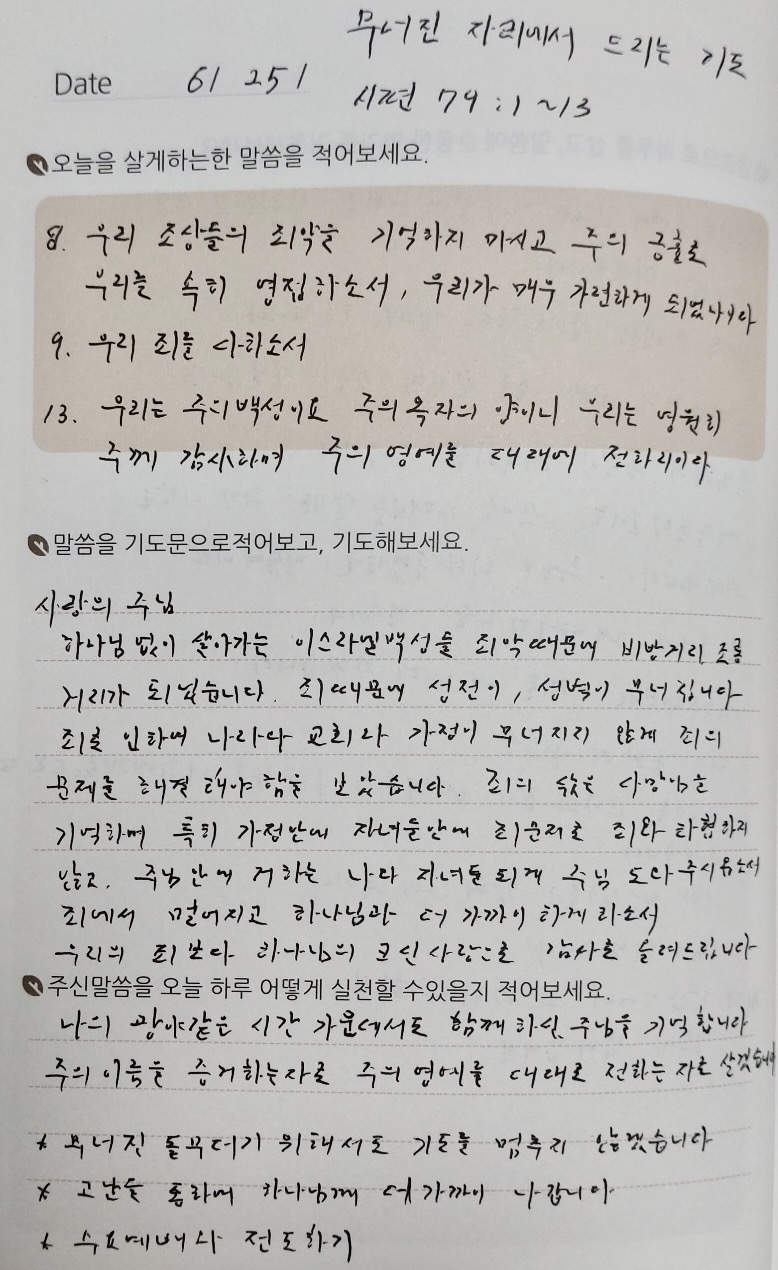 무너진 자리에서 드리는 기도
Date 6/ 25/
시편 79:1~13
오늘을 살게하는한 말씀을 적어보세요.
8. 우리 조상들의 죄악을 기억하지 마시고 주의 긍휼로
우리를 속히 영접하소서, 우리가 매우 가련하게 되었나이다
9. 우리 죄를 사하소서
13. 우리는 주의백성이요 주의 목자의 양이니 우리는 영원히
주께 감사하며 주의 영예를 대대에 전하리이다
말씀을 기도문으로적어보고, 기도해보세요.
사랑의 주님
하나님 없이 살아가는 이스라엘백성들 죄악때문에 비방거리 조롱
거리가 되었습니다. 죄때문에 성전이, 성벽이 무너집니다
죄로 인하여 나라나 교회나 가정이 무너지지 않게 죄의
문제를 해결해야 함을 보았습니다. 죄의 삯은 사망임을
기억하며 특히 가정안에 자녀들안에 죄문제로 죄와 타협하지
않고, 주님안에 거하는 나와 자녀들 되게 주님 도와주시옵소서
죄에서 멀어지고 하나님과 더 가까이 하게 하소서
우리의 죄보다 하나님의 크신사랑으로 감사로 올려드립니다
주신말씀을 오늘 하루 어떻게 실천할 수있을지 적어보세요.
나의 광야같은 시간 가운데서도 함께 하신 주님을 기억합니다
주의 이름을 증거하는자로 주의 영예를 대대로 전하는 자로 살겠습니다
* 무너진 돌무더기 위에서도 기도를 멈추지 않겠습니다
* 고난을 통하여 하나님께 더 가까이 나갑니다
* 수요예배 전도하기